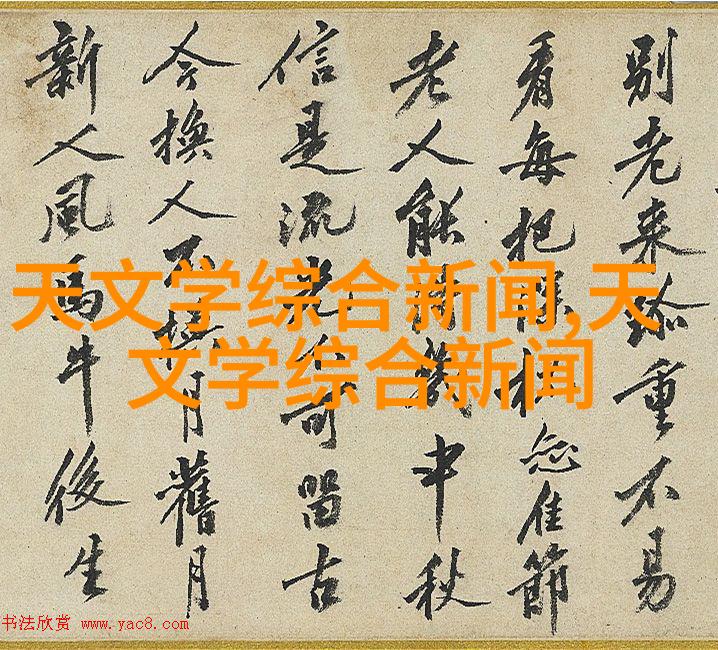 别老来重不易
看每把佳節
老人能得幾中秋
信是流光不可留古
今換人不換月舊月
新人風馬牛後生
天文学综合新闻,天
文学综合新闻
书法欣赏 www.yac8.com